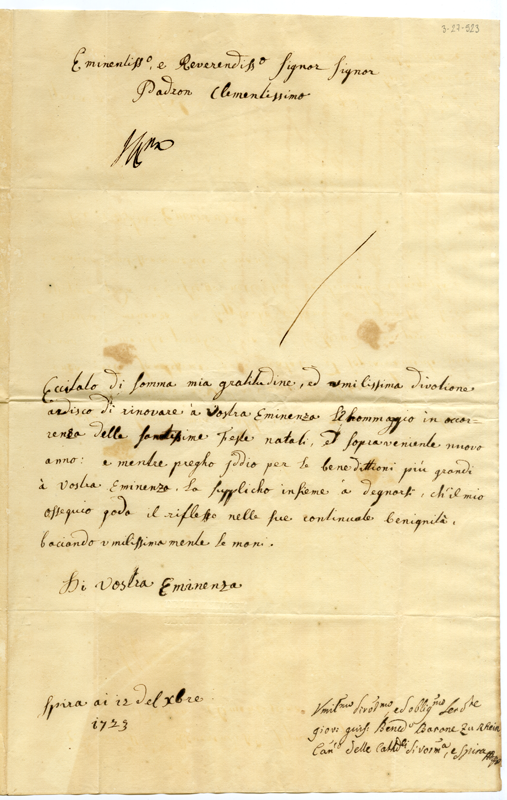 3-27-523
Eminentiss.o, e Reverendiss.o Signor Signor
Padron Clementissimo
Eccitato di somma mia gratitudine, ed umilissima divotione
ardisco di rinovare à Vostra Eminenza l'hommaggio in occor-
renza delle santissime Feste natali, et sopraveniente nuovo
anno: e mentre pregho Iddio per le benedittioni più grandi
à Vostra Eminenza, La supplicho insieme à degnarsi, ch'il mio
ossequio goda il riflesso nelle sue continuate benignità,
baciando umilissimamente le mani.
Di Vostra Eminenza
Spira ai 12 del Xbre
1723
Umil.mo divot.mo ed oblig.mo
Bened.o Barone
Can.co delle Catted.li di Vorm.a, e Spira